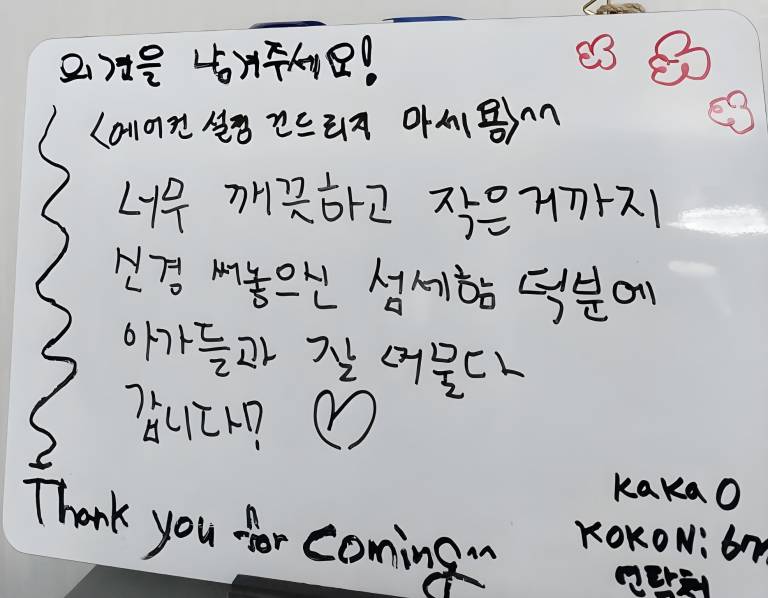 의견을 남겨주세요!
<에어컨 설정 건드리지 마세용>^^
너무 깨끗하고 작은거까지
신경 써놓으신 섬세함 덕분에
아가들과 잘 머물다
갑니다! ♡
Thank you for coming^^
KaKaO
KOKON: 6
연락처